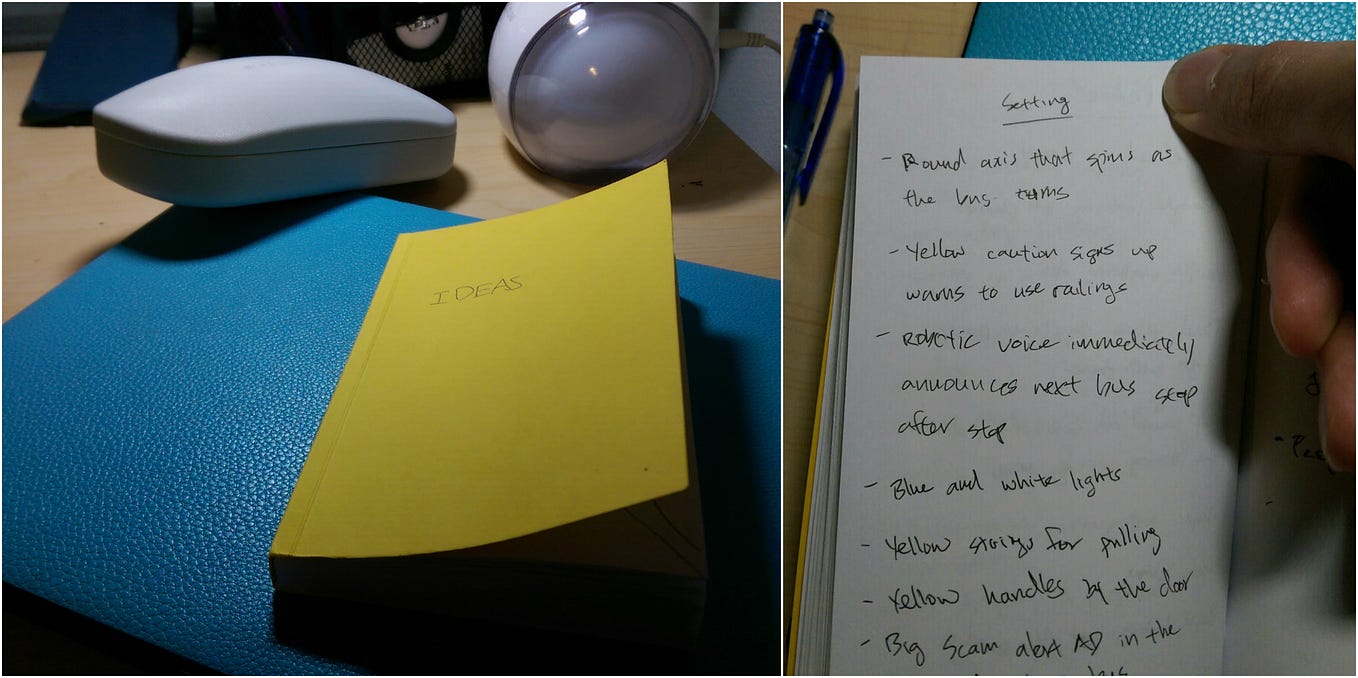 IDEAS
Setting
- Round axis that spins as
the bus turns
- Yellow caution signs up
warns to use railings
- Robotic voice immediately
announces next bus stop
after stop
- Blue and white lights
- Yellow strings for pulling
- Yellow handles by the door
- Big Scam alert AD in the
bus